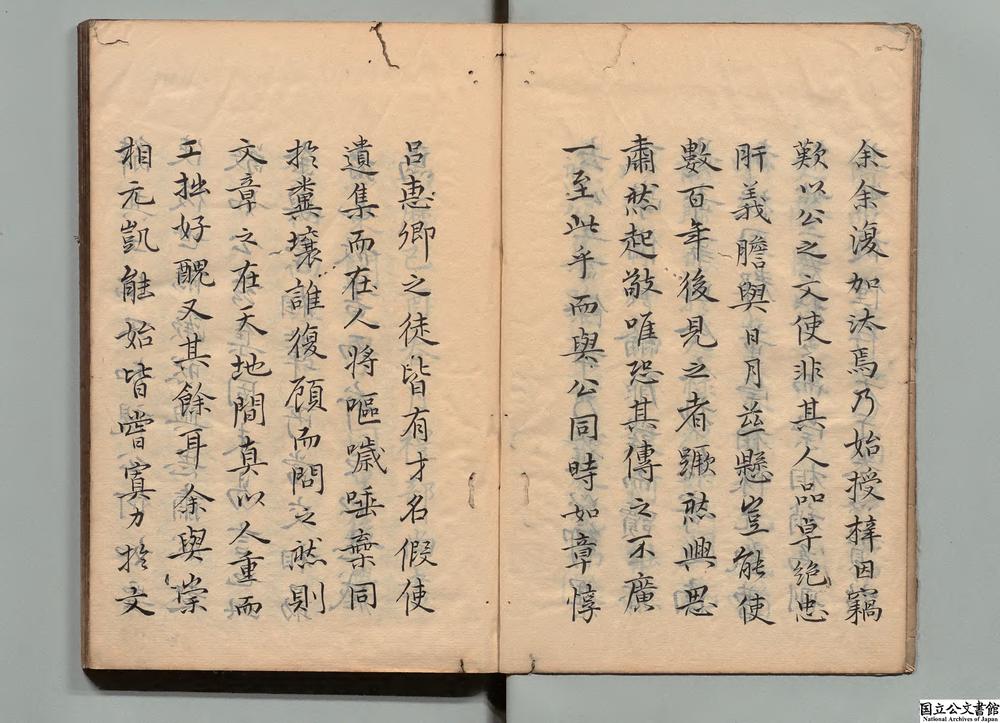 余余復加汰焉乃始授梓因竊
歎以公之文使非其人品卓絶忠
肝義膽與日月並懸豈能使
數百年後見之者蹶然興思
肅然起敬唯恐其傳之不廣
一至此乎而與公同時如章惇
呂惠卿之徒皆有才名假使
遺集而在人將嘔噦唾棄同
於糞壤誰復顧而問之然則
文章之在天地間真以人重而
工拙好醜又其餘耳余與棠
相元凱能始皆嘗寘力於文
国立公文書館
National Archives of Japan